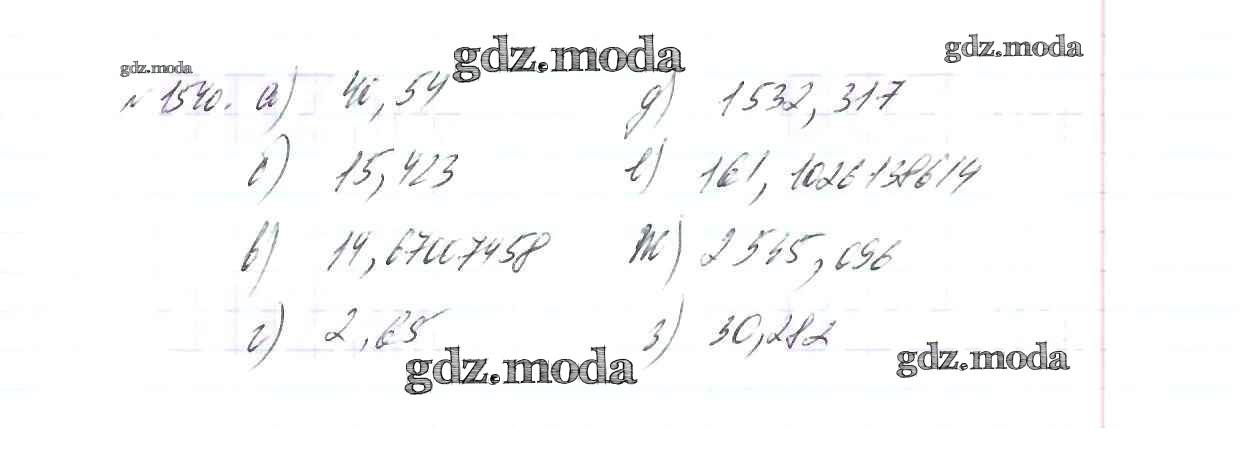 gdz.moda
gdz.moda
gdz.moda
№ 1540. а) 40,54 д) 1532,317
б) 15,423 е) 161,1026138614
в) 14,67007458 ж) 2545,696
г) 2,65 з) 30,282
gdz.moda
gdz.moda